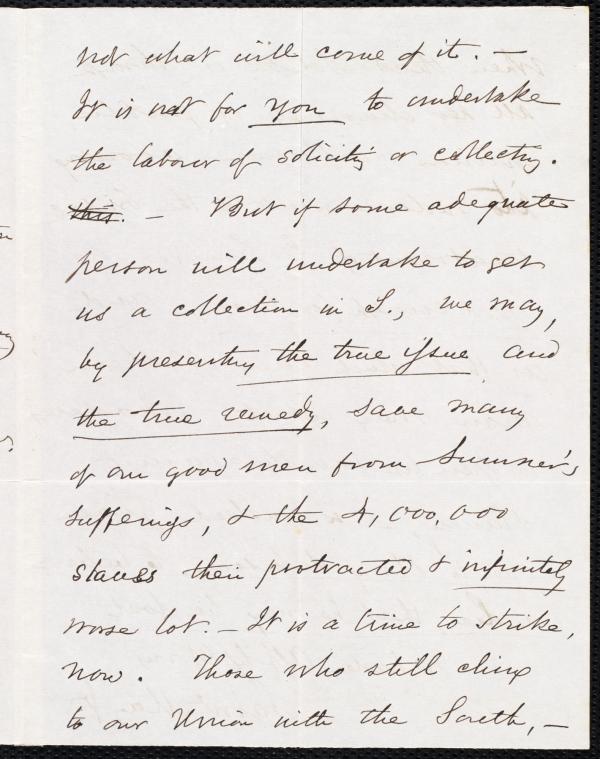 not what will come of it. —
It is not for you to undertake
the labour of soliciting or collecting.
this. — But if some adequate
person will undertake to get
us a collection in S., we may,
by presenting the true issue and
the true remedy, save many
of our good men from Sumner's
sufferings, & the 4,000,000
slaves their protracted & infinitely
worse lot. — It is a time to strike,
now. Those who still cling
to our Union with the South, —